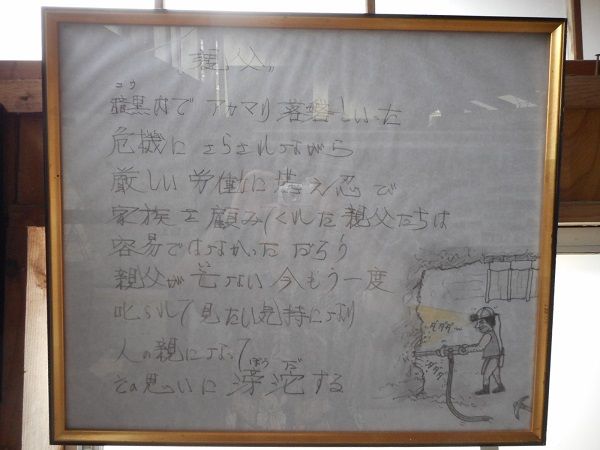 "親父"
コウ
暗黒内で アカマリ 落磐しいった
危機に さらされながら
厳しい 労働に 堪え忍で
家族を 顧みてくれた 親父たちは
容易ではなかった だろう
親父が 亡ない 今もう一度
叱られて 見たい気持になり
人の親になって
その思いに 滂沱する
ぼう だ
ダダダー
ダダダ